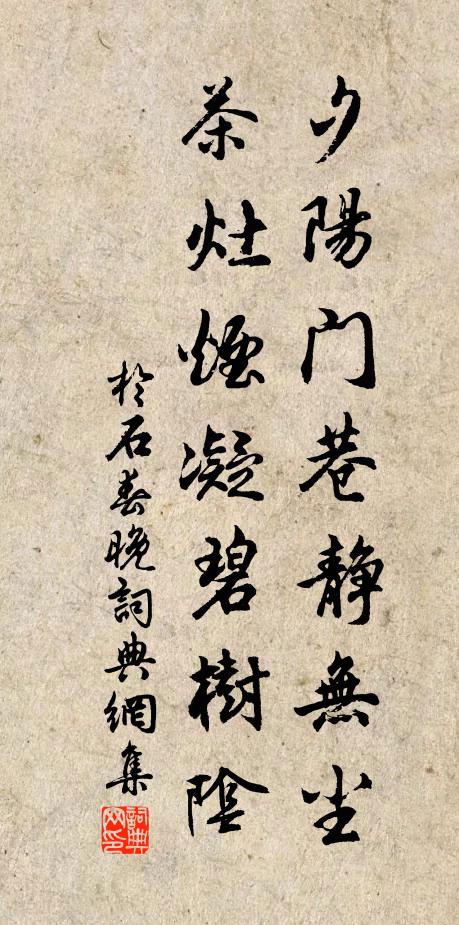 夕陽門巷静無尘
茶灶煙凝碧樹陰
於石春晚詞典網集
詞典網印